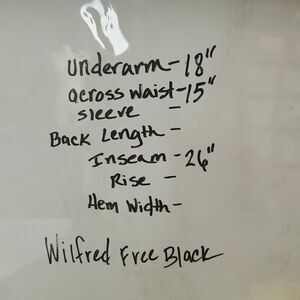 underarm - 18"
across waist - 15"
sleeve -
Back Length -
Inseam - 26"
Rise -
Hem Width -
Wilfred Free Black